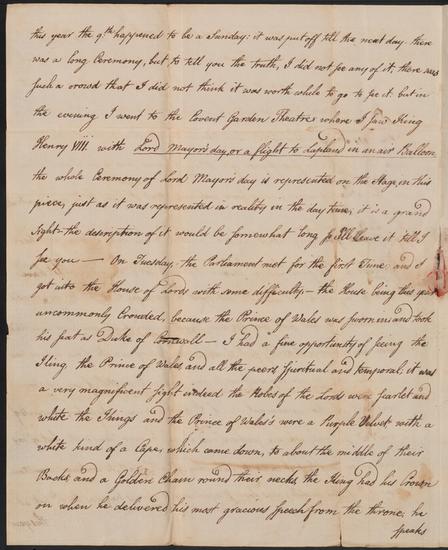 this year the 9th happened to be a Sunday: it was put off till the next day. there
was a long Ceremony, but to tell you the truth, I did not see any of it, there was
such a crowd that I did not think it was worth while to go to see it. but in
the evening I went to the Covent Garden Theatre where I saw King
Henry VIII. with Lord Mayor's day, or a flight to Lapland in an air Balloon
the whole Ceremony of Lord Mayor's day is represented on the Stage, in this
piece, just as it was represented in reality in the day time, it is a grand
sight - the description of it would be somewhat long so I'll leave it till I
see you — On Tuesday, the Parliament met for the first Time, and I
got into the House of Lords with some difficulty, - the House being that year
uncommonly Crouded, because the Prince of Wales was sworn in and took
his seat as Duke of Cornwall — I had a fine opportunity of seeing the
King, the Prince of Wales and all the peers Spiritual and temporal; it was
a very magnificent sight indeed the Robes of the Lords were scarlet and
white the Kings and the Prince of Wales's were a Purple Velvet with a
white kind of a Cape, which came down, to about the middle of their
Backs, and a Golden Chain round their necks the King had his Crown
on when he delivered his most gracious Speech from the throne, he
speaks